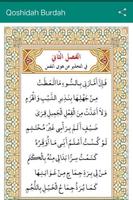 Qoshidah Burdah
الفصل الثاني
في التحذير من هوى النفس
فَإِنَّ أَمَّارَتِي بِالسُّوءِ مَا اتَّعَظَتْ
مِنْ جَهْلِهَا بِنَذِيرِ الشَّيْبِ وَالْهَرَمِ
وَلَا أَعَدَّتْ مِنَ الْفِعْلِ الْجَمِيلِ قِرَى
ضَيْفٍ أَلَمَّ بِرَأْسِي غَيْرَ مُحْتَشِمِ
لَوْ كُنْتُ أَعْلَمُ أَنِّي مَا أُوَقِّرُهُ
كَتَمْتُ سِرًّا بَدَا لِي مِنْهُ بِالْكَتَمِ
مَنْ لِي بِرَدِّ جِمَاحٍ مِنْ غَوَايَتِهَا